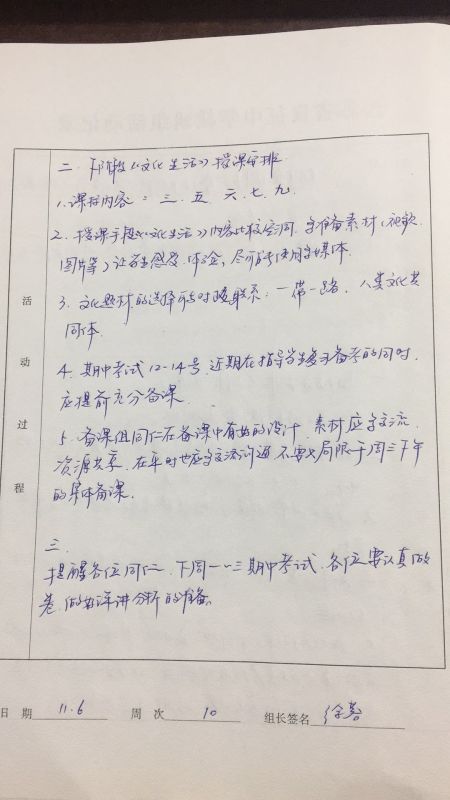 二、阶段《文化生活》授课安排
1、课程内容：三、五、六、七、九
2、授课手段《文化生活》内容比较空洞，多准备素材（视频、
图片等）让学生感受、体会，尽可能使用多媒体
3、文化题材的选择可与时政联系：一带一路、人类文化共
同体
4、期中考试12-14号，近期在指导学生复习备考的同时，
应提前充分备课
5、备课组同仁在备课中有好的设计、素材应多交流，
资源共享，在平时也应多交流沟通，不要只局限于周三下午
的集体备课.
三、
提醒各位同仁，下周一~三期中考试，各位要认真做
卷，做好评讲分析的准备。
活
动
过
程
日 期 11.6 周 次 10 组长签名 徐